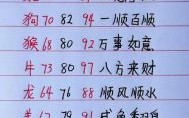 狗 70 82 94 一顺百顺
猴 68 80 92 万事如意
牛 73 80 97 八方来财
龙 64 76 88 顺风顺水